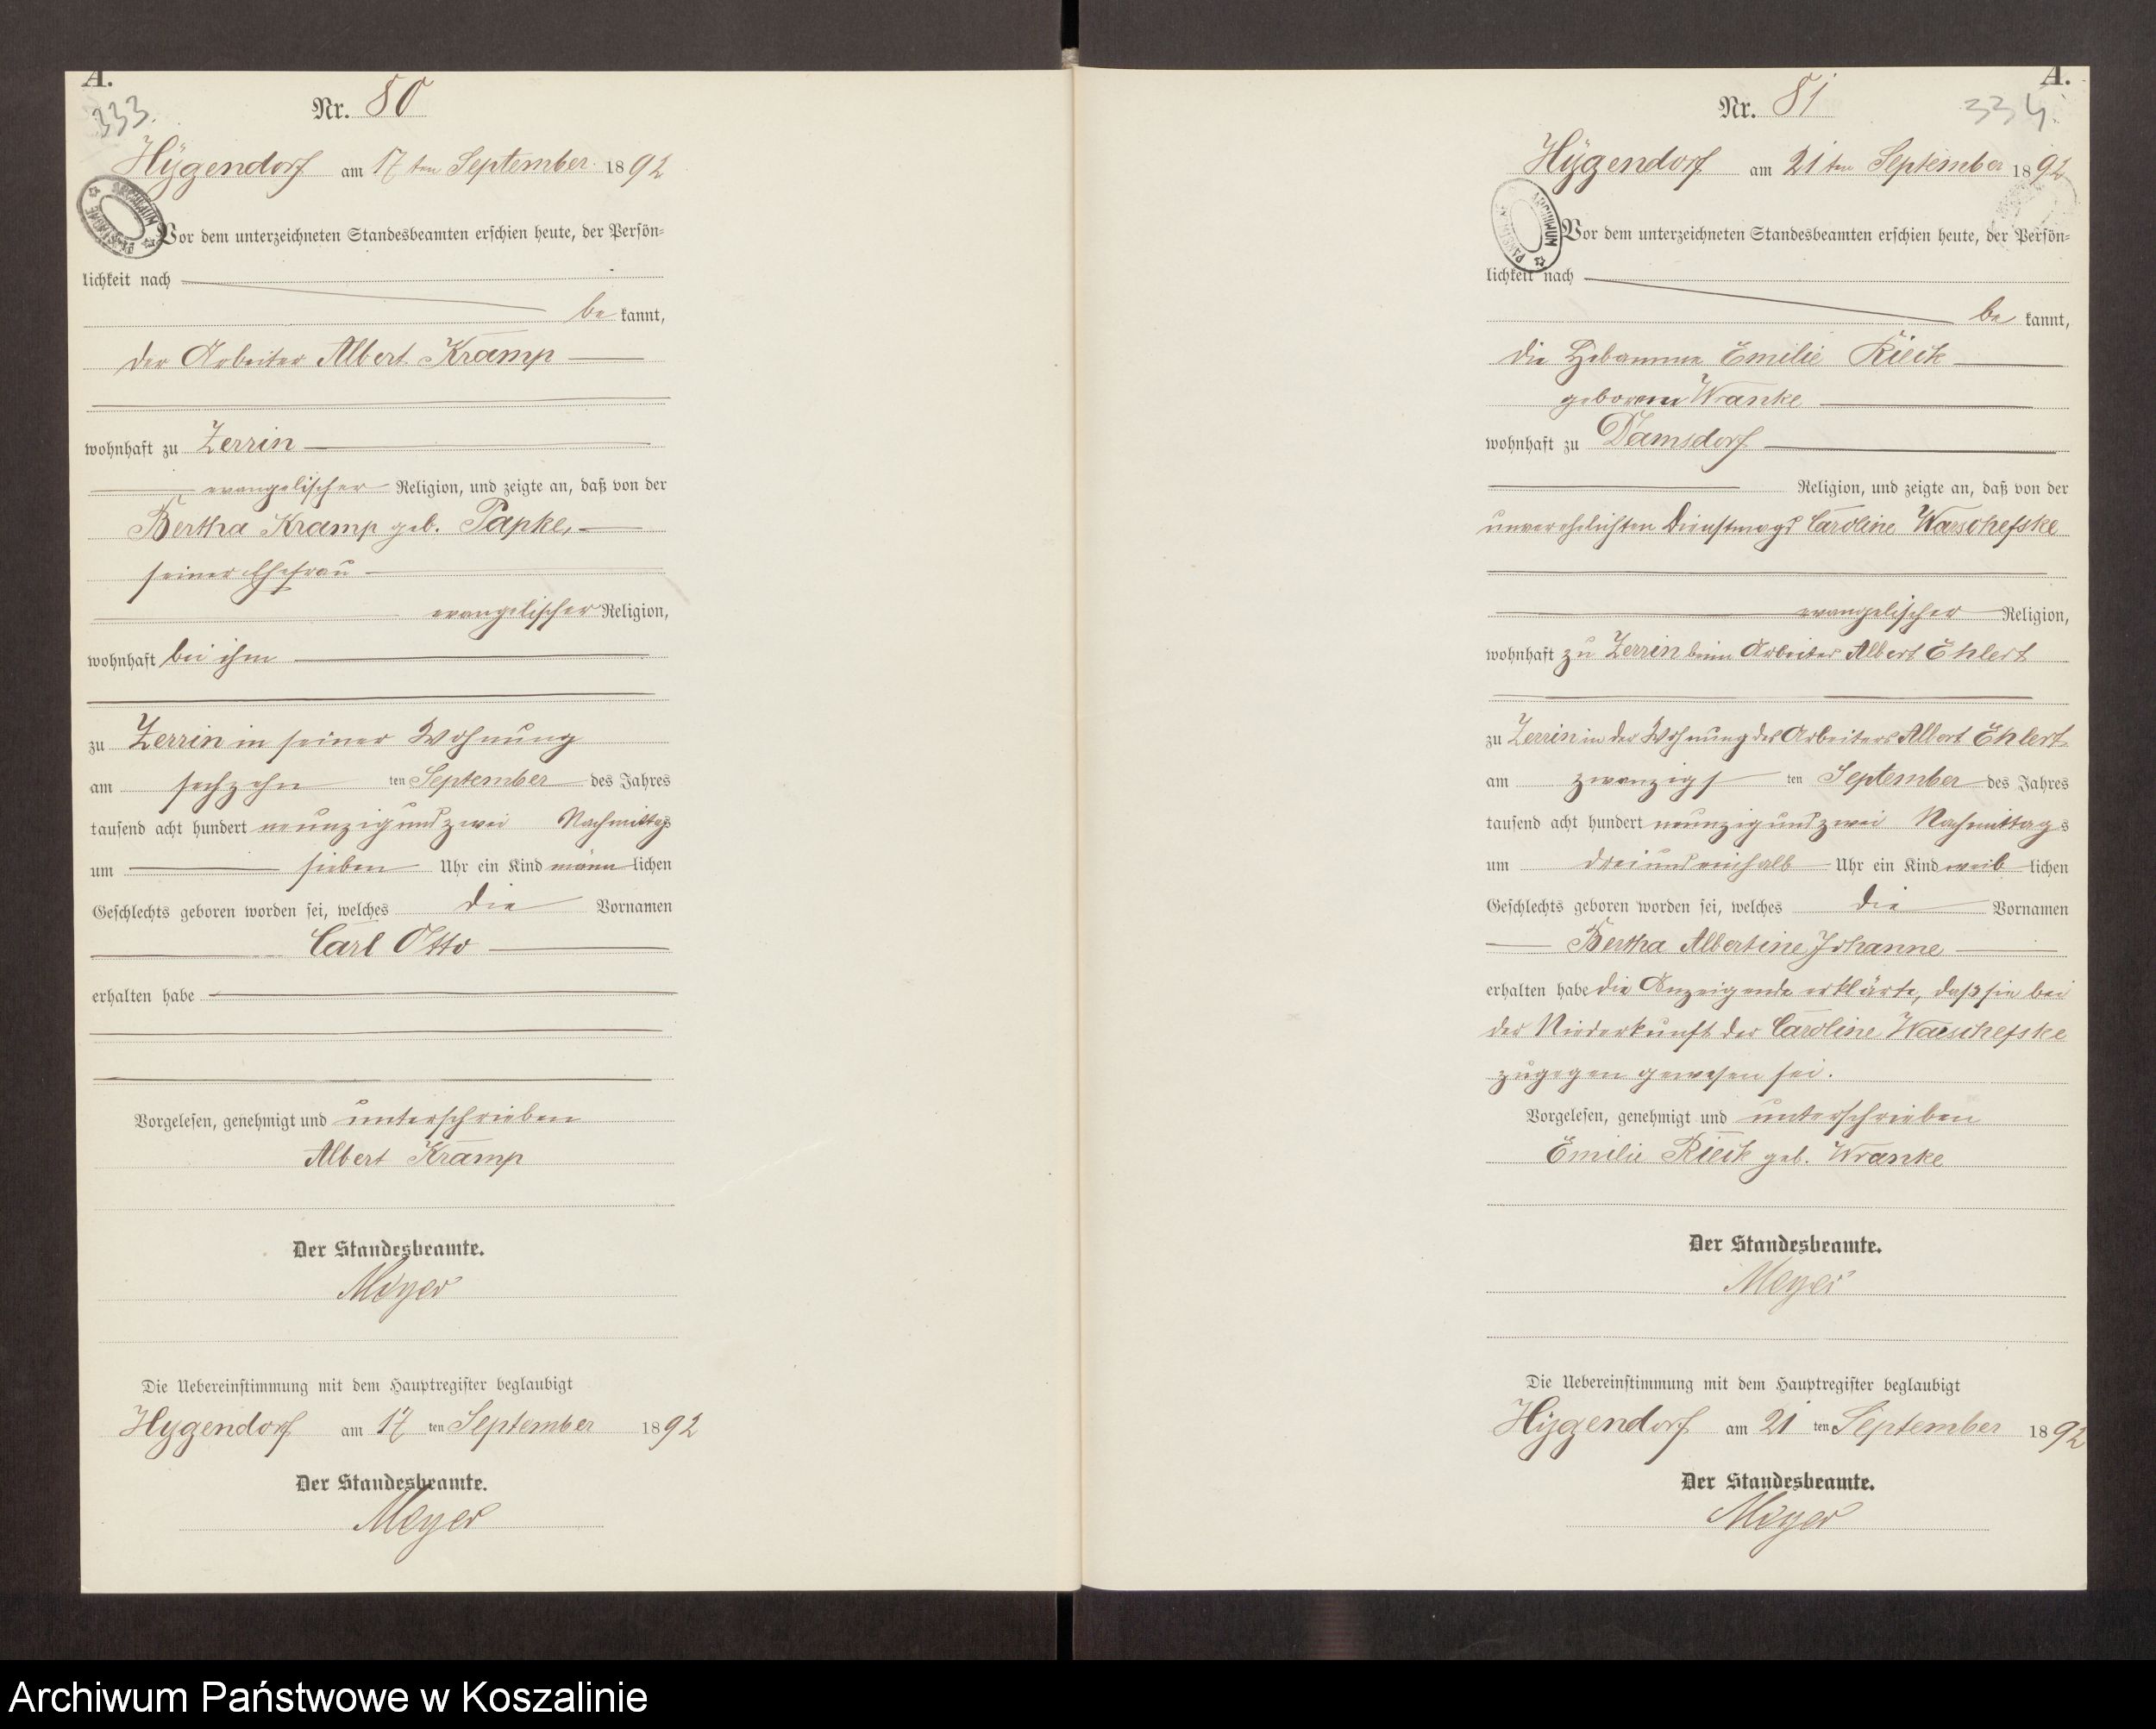 A.
333.
Nr. 80
Hygendorf am 17 ten September 1892
Vor dem unterzeichneten Standesbeamten erschien heute, der Persön-
lichkeit nach
be kannt,
der Arbeiter Albert Kramp
wohnhaft zu Zerrin
evangelischer Religion, und zeigte an, daß von der
Bertha Kramp geb. Papke,
seiner Ehefrau
evangelischer Religion,
wohnhaft bei ihm
zu Zerrin in seiner Wohnung
am sechzehn ten September des Jahres
tausend acht hundert neunzig und zwei Nachmittags
um sieben Uhr ein Kind männ lichen
Geschlechts geboren worden sei, welches die Vornamen
Carl Otto
erhalten habe
Vorgelesen, genehmigt und unterschrieben
Albert Kramp
Der Standesbeamte.
Meyer
Die Uebereinstimmung mit dem Hauptregister beglaubigt
Hygendorf am 17 ten September 1892
Der Standesbeamte.
Meyer
A.
334.
Nr. 81
Hygendorf am 21 ten September 1892
ARCHIWUM
Vor dem unterzeichneten Standesbeamten erschien heute, der Persön-
lichkeit nach
be kannt,
die Hebamme Emilie Rieck
geborene Wranke
wohnhaft zu Damsdorf
Religion, und zeigte an, daß von der
unverehelichten Dienstmagd Caroline Warschefske
evangelischer Religion,
wohnhaft zu Zerrin beim Arbeiter Albert Ehlert
zu Zerrin in der Wohnung des Arbeiters Albert Ehlert
am zwanzigs ten September des Jahres
tausend acht hundert neunzig und zwei Nachmittags
um drei und einhalb Uhr ein Kind weib lichen
Geschlechts geboren worden sei, welches die Vornamen
Bertha Albertine Johanne
erhalten habe die Anzeigende erklärte, daß sie bei
der Niederkunft der Caroline Warschefske
zugegen gewesen sei.
Vorgelesen, genehmigt und unterschrieben
Emilie Rieck geb. Wranke
Der Standesbeamte.
Meyer
Die Uebereinstimmung mit dem Hauptregister beglaubigt
Hygendorf am 21 ten September 1892
Der Standesbeamte.
Meyer
Archiwum Państwowe w Koszalinie